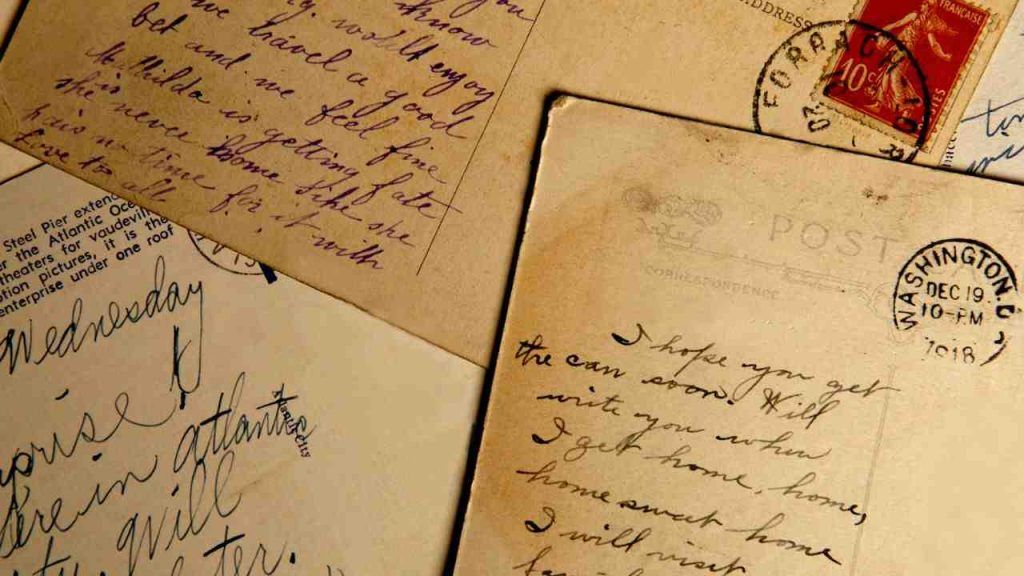 you
know
will enjoy
have a good
bet and we feel fine
Hilda is getting fate
she never home like she
hais no time for it with
love to all
ADDRESS
FORBACH
FRANÇAISE
10c
Steel Pier exten
the Atlantic Oce
theaters for vaudevil
tion pictures, it is the
enterprise under one roof
Wednesday
rise!
Here in Atlantic
City. Will
ter.
POST
CORRESPONDENCE
WASHINGTON, D.C.
DEC 19.
10-PM
1918
I hope you get
the can soon. Will
write you when
I get home, home,
home sweet home
I will visit